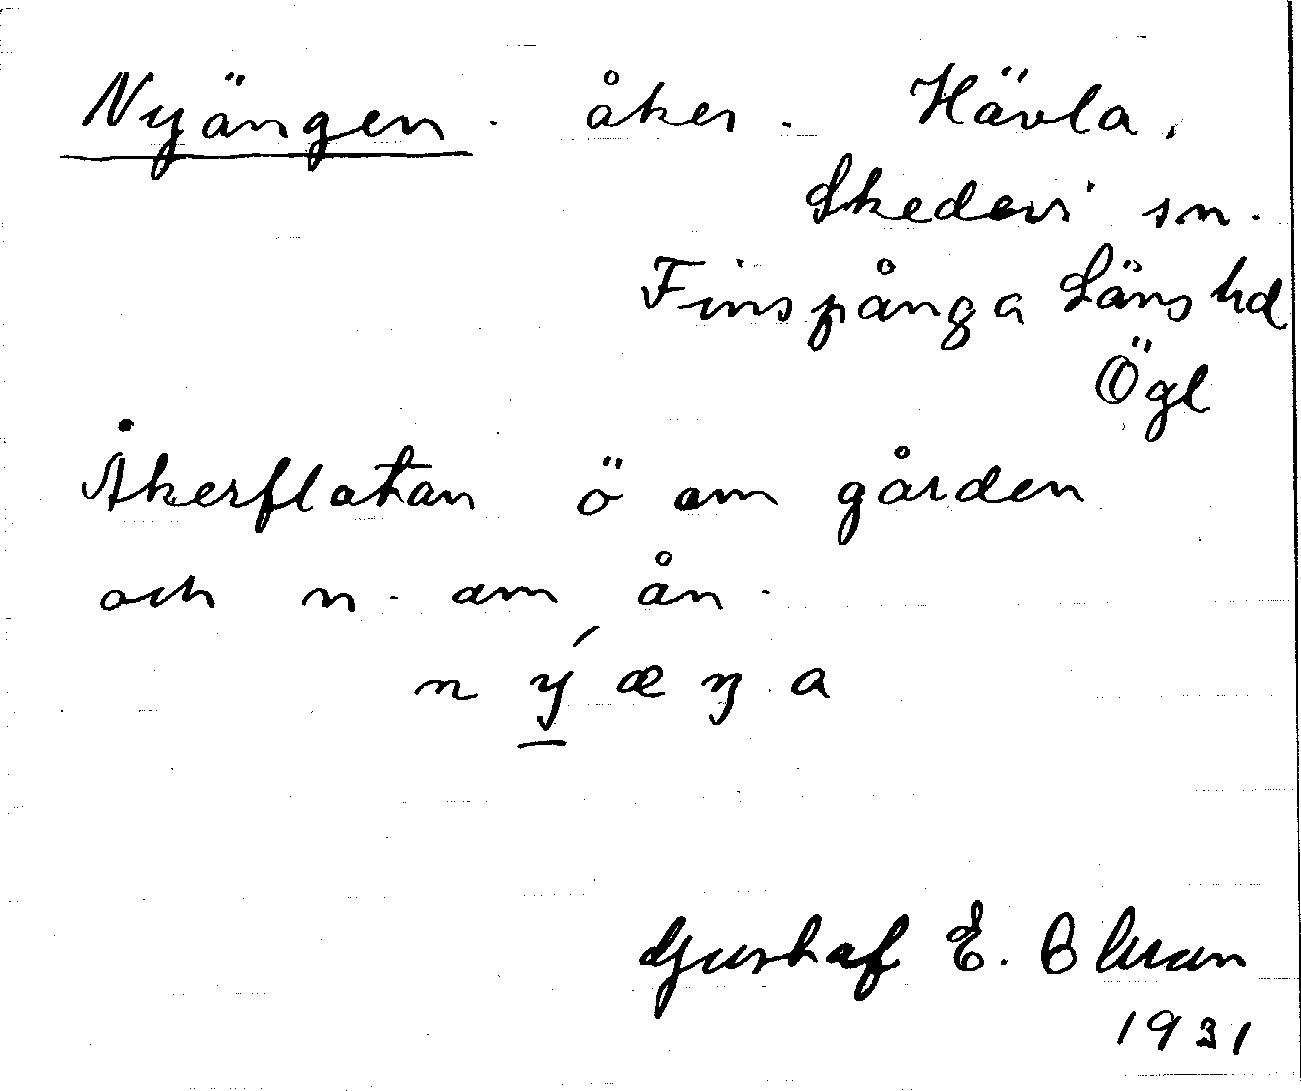 Nyängen. åker. Hävla,
Skedevi sn.
Finspånga Läns hd
Ögl
Åkerflatan ö om gården
och n. om ån.
n ý æ ŋ a
Gustaf E.
1931